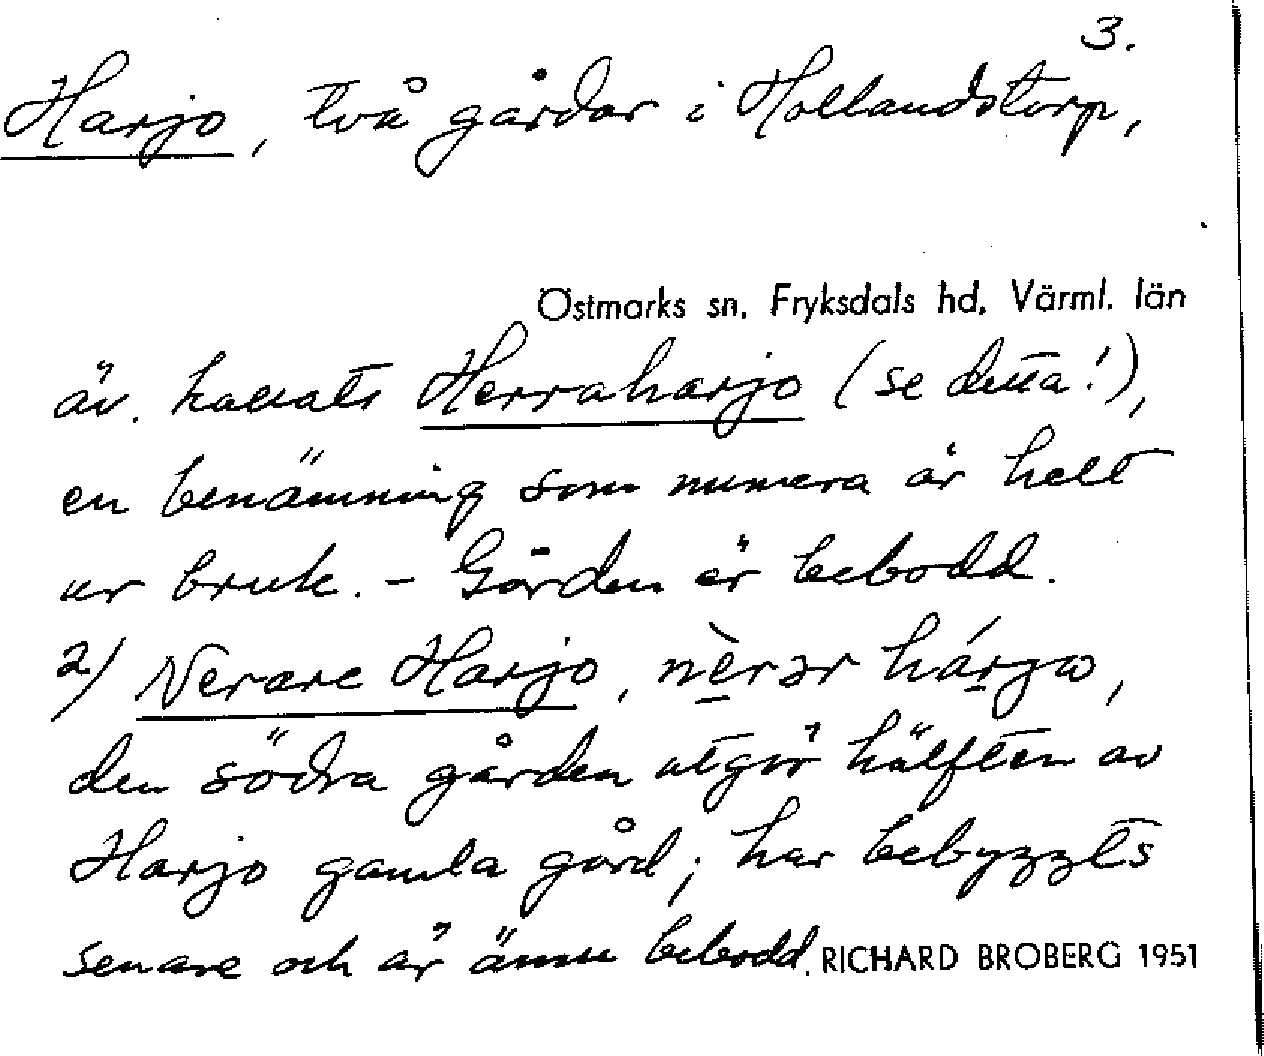 3.
Harjo, två gårdar i Hollandstorp,
Östmarks sn. Fryksdals hd, Värml. län
äv. kallats Herraharjo (se detta!),
en benämning som numera är helt
ur bruk. - Gården är bebodd.
2) Nerare Harjo, nèrər hárjω,
den södra gården utgör hälften av
Harjo gamla gård; har bebyggts
senare och är ännu bebodd.
RICHARD BROBERG 1951